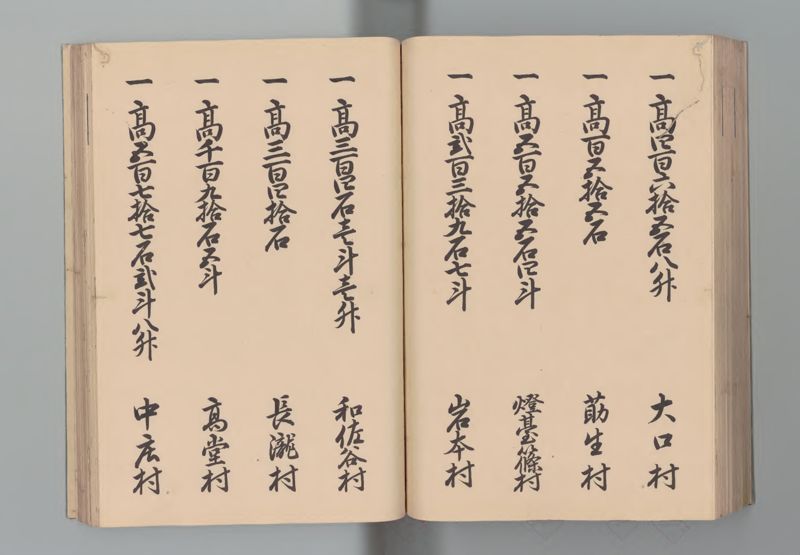 一 高四百六拾五石八升 大口村
一 高百五拾五石 莇生村
一 高五百五拾五石四斗 燈臺篠村
一 高弐百三拾九石七斗 岩本村
一 高三百四石壱斗壱升 和佐谷村
一 高三百四拾石 長瀧村
一 高千百九拾石五斗 高堂村
一 高五百七拾七石弐斗八升 中庄村